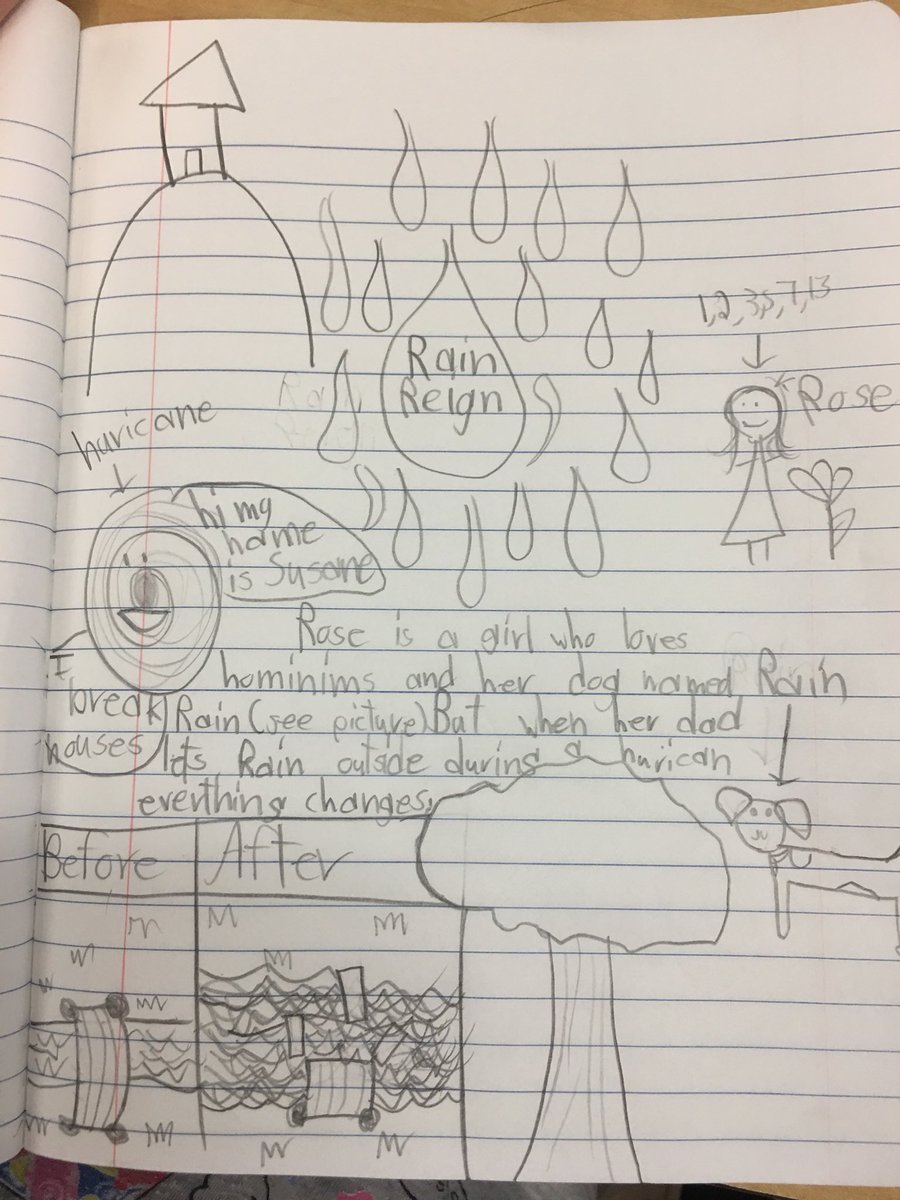 Rain
Reign
1,2,3,5,7,13
Rose
huricane
hi my
name
is Susane
I
break
houses
Rose is a girl who loves
hominims and her dog named Rain
Rain(see picture).But when her dad
lets Rain outside during a hurican
everthing changes.
Before
After